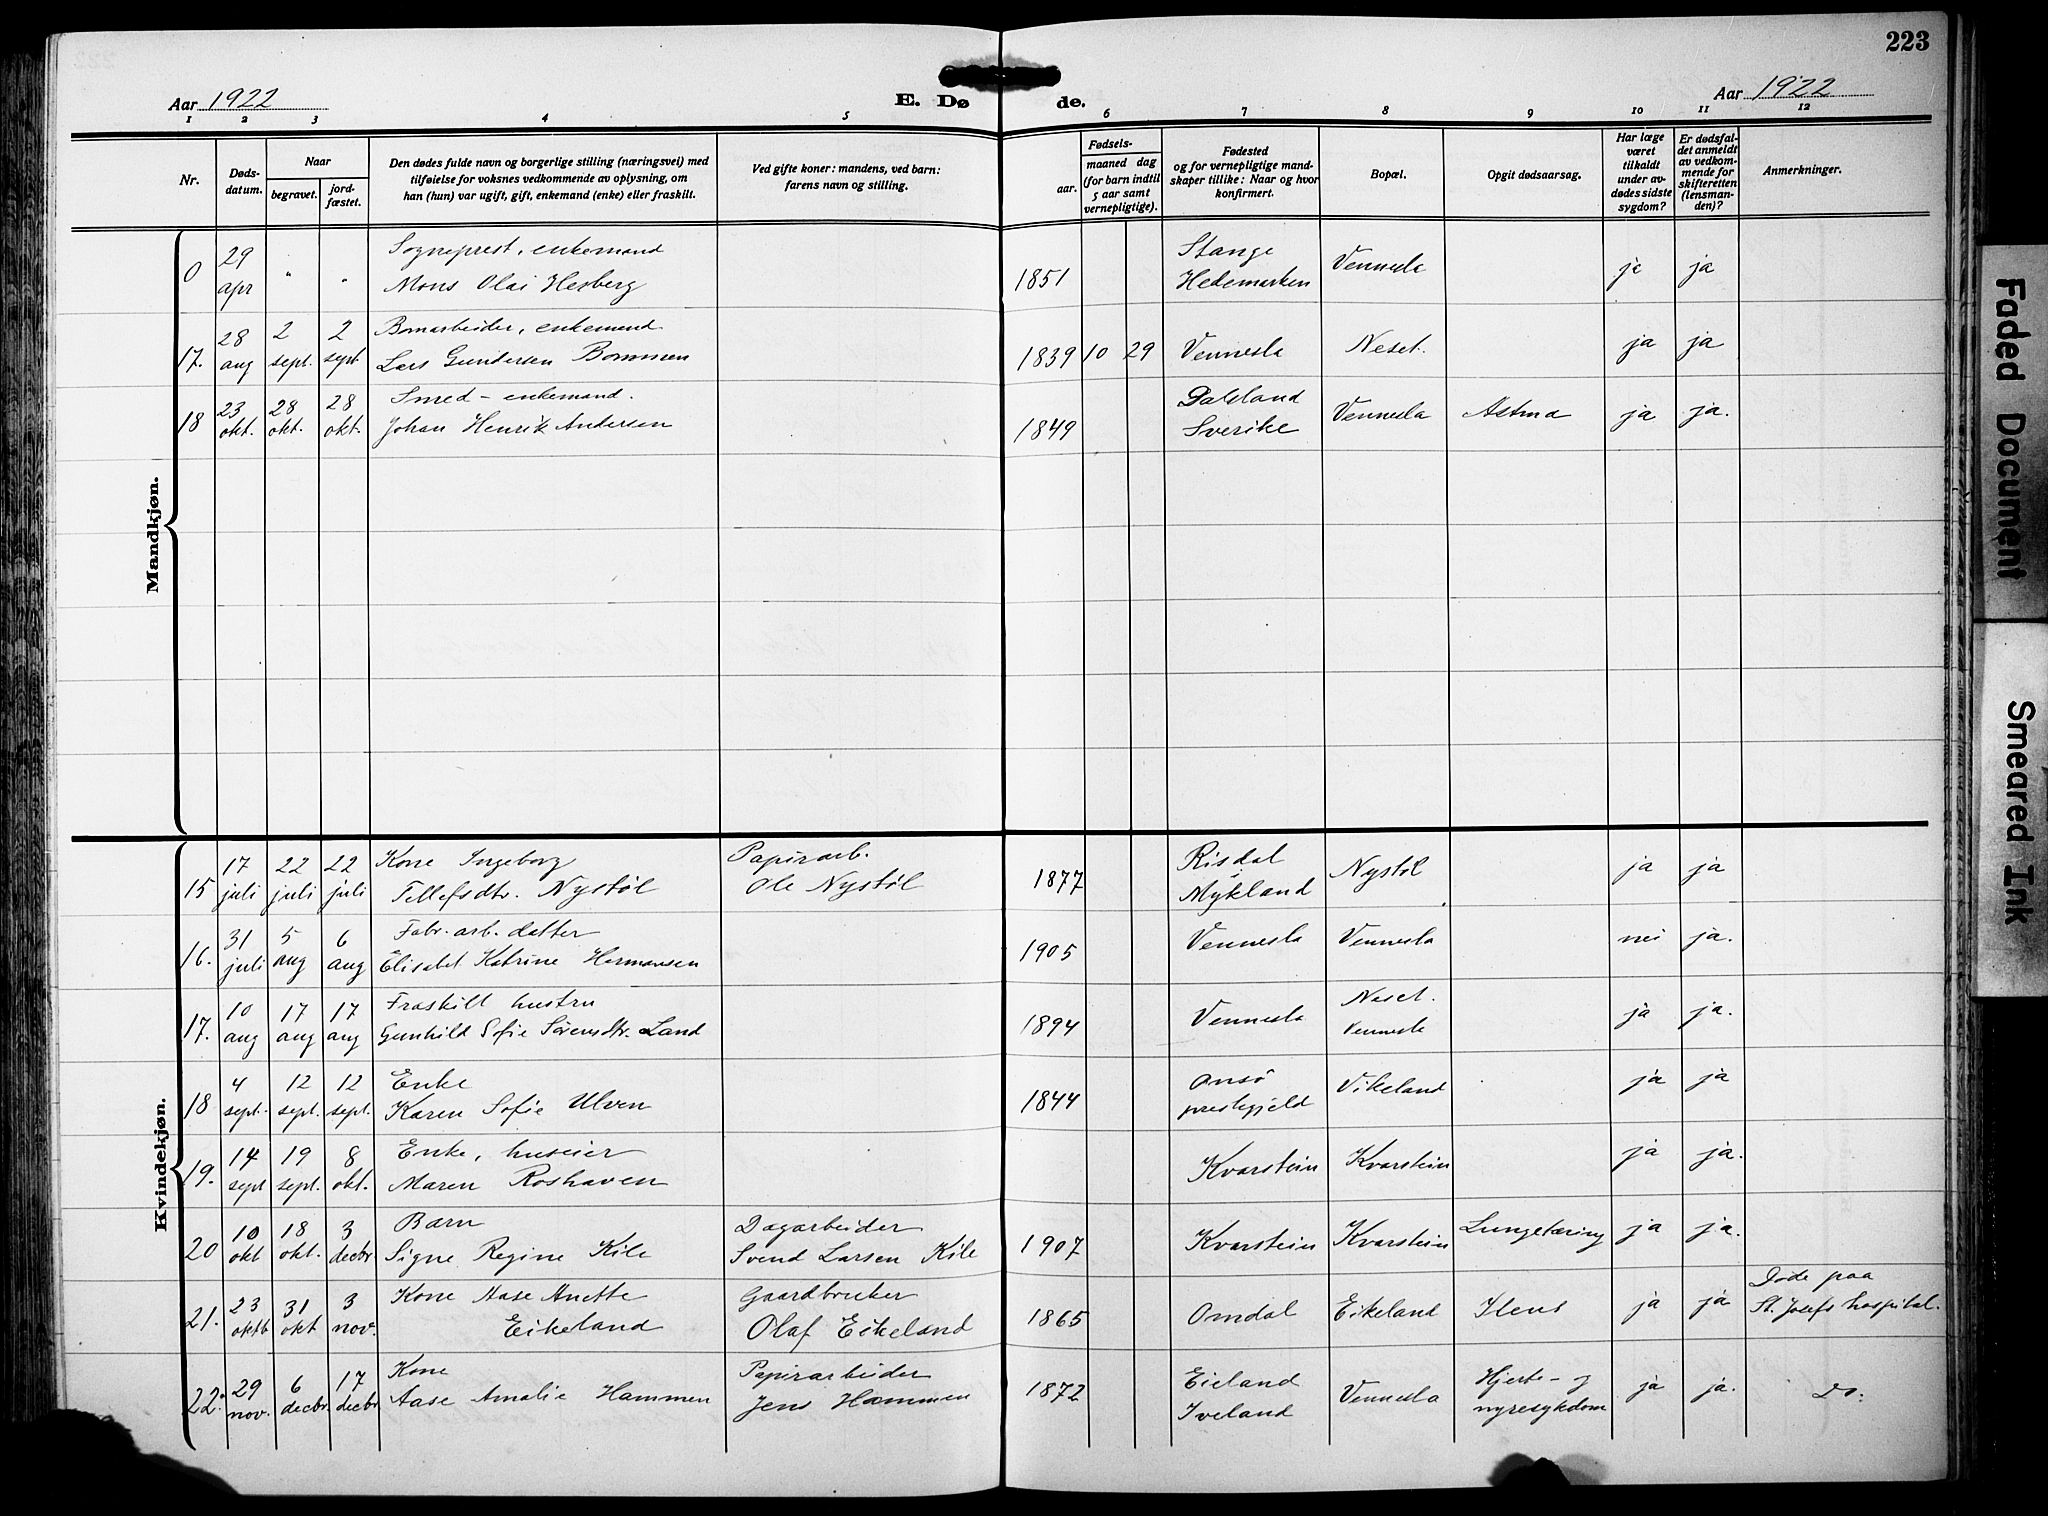 223
Aar 1922
E. Døde.
Aar 1922
1 2 3 4 5 6 7 8 9 10 11 12
Nr.
Døds-
datum.
Naar
begravet.
jord-
fæstet.
Den dødes fulde navn og borgerlige stilling (næringsvei) med
tilføielse for voksnes vedkommende av oplysning, om
han (hun) var ugift, gift, enkemand (enke) eller fraskilt.
Ved gifte koner: mandens, ved barn:
farens navn og stilling.
Fødsels-
aar.
maaned dag
(for barn indtil
5 aar samt
vernepligtige).
Fødested
og for vernepligtige mand-
skaper tillike: Naar og hvor
konfirmert.
Bopæl.
Opgit dødsaarsag.
Har læge
været
tilkaldt
under av-
dødes sidste
sygdom?
Er dødsfal-
det anmeldt
av vedkom-
mende for
skifteretten
(lensman-
den)?
Anmerkninger.
Mandkjøn.
29 Sogneprest, enkemand Stange Vennesla ja ja
0 apr " " Mons Olai Hesberg 1851 Hedemarken
28 2 2 Bomarbeider, enkemand
17. aug sept. sept Lars Gundersen Bommen 1839 10 29 Vennesla Neset. ja ja
23 28 28 Smed - enkemand. Dalsland
18 okt. okt. okt. Johan Henrik Andersen 1849 Sverike Vennesla Astma ja ja.
Kvindekjøn.
17 22 22 Kone Ingeborg Papirarb. Risdal
15 juli juli juli Tellefsdtr. Nystøl Ole Nystøl 1877 Mykland Nystøl ja ja
31 5 6 Fabr. arb. datter
16. juli aug aug Elisabet Katrine Hermansen 1905 Vennesla Vennesla nei ja.
10 17 17 Fraskilt hustru Neset.
17. aug aug aug Gunhild Sofie Sørensdtr. Land 1894 Vennesla Vennesla ja ja.
4 12 12 Enke Onsø
18 sept. sept. sept. Karen Sofie Ulven 1844 prestegjeld Vikeland ja ja
14 19 8 Enke, huseier
19. sept sept. okt. Maren Roshaven Kvarstein Kvarstein ja ja.
10 18 3 Barn Dagarbeider
20 okt okt. decbr. Signe Regine Kile Svend Larsen Kile 1907 Kvarstein Kvarstein Lungetæring ja ja.
23 31 3 Kone Aase Anette Gaardbruker Døde paa
21. oktb okt nov. Eikeland Olaf Eikeland 1865 Omdal Eikeland Ilens ja ja St. Josefs hospital.
29 6 17 Kone Papirarbeider Eieland Hjerte- og
22. nov. decbr. decbr Aase Amalie Hammen Jens Hammen 1872 Iveland Vennesla nyresykdom ja ja. Do.
Faded Document
Smeared Ink